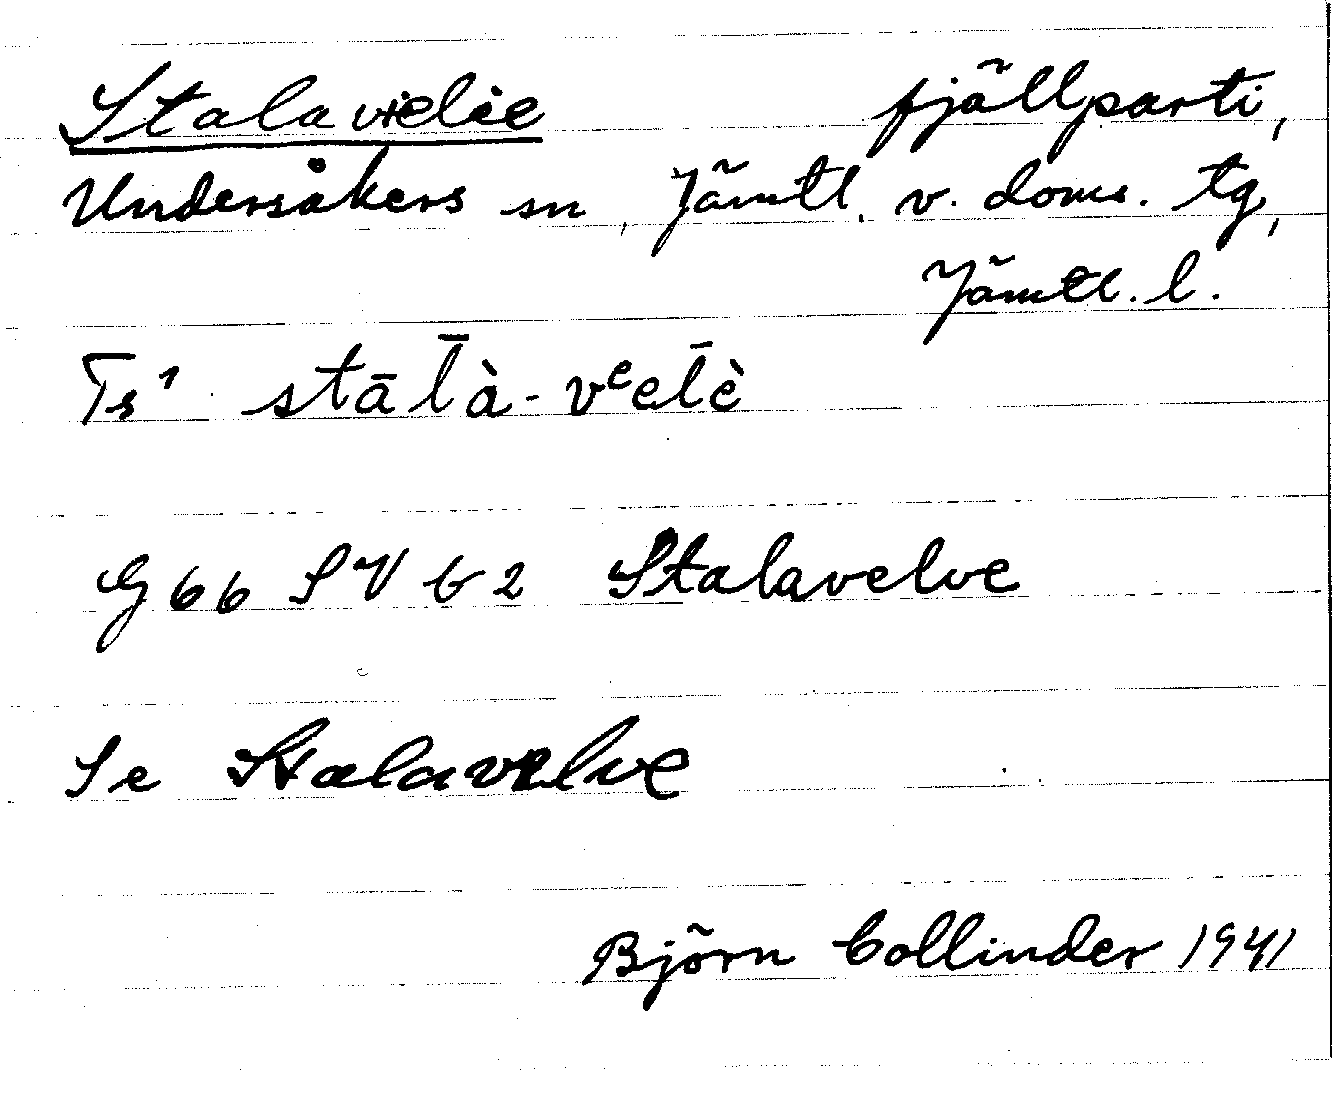 Stalavielie fjällparti,
Undersåkers sn, Jämtl. v. doms. tg,
Jämtl. l.
Ts¹ stāl̄à-vᵉel̄è
G 66 SV b 2 Stalavelve
Se Stalavelve
Björn Collinder 1941